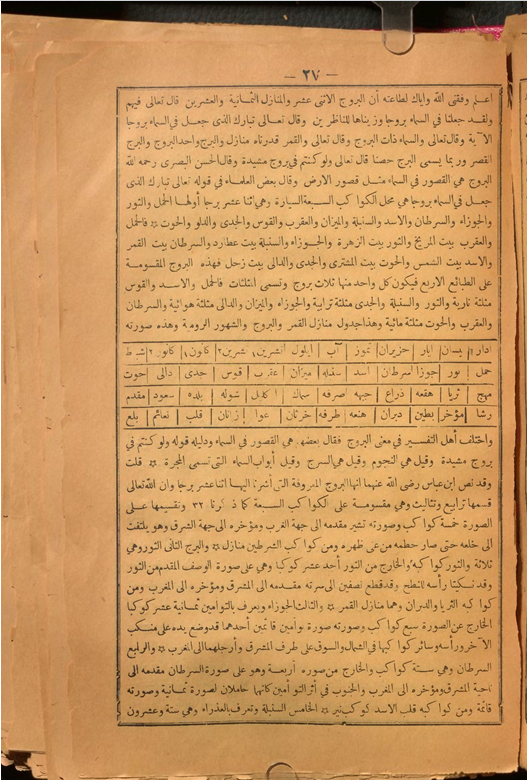 — ٢٧ —
اعلم وفقنى الله واياك لطاعته أن البروج الاثنى عشر والمنازل الثمانية والعشرين قال تعالى فيهم
ولقد جعلنا فى السماء بروجا وزيناها للناظرين وقال تعالى تبارك الذى جعل فى السماء بروجا
الآية وقال تعالى والسماء ذات البروج وقال تعالى والقمر قدرناه منازل والبرج واحد البروج والبرج
القصر وربما يسمى البرج حصنا قال تعالى ولو كنتم فى بروج مشيدة وقال الحسن البصرى رحمه الله
البروج هى القصور فى السماء مثل قصور الارض وقال بعض العلماء فى قوله تعالى تبارك الذى
جعل فى السماء بروجا هى محل الكواكب السبعة السيارة وهى اثنا عشر برجا أولها الحمل والثور
والجوزاء والسرطان والاسد والسنبلة والميزان والعقرب والقوس والجدى والدلو والحوت فالحمل
والعقرب بيت المريخ والثور بيت الزهرة والجوزاء والسنبلة بيت عطارد والسرطان بيت القمر
والاسد بيت الشمس والحوت بيت المشترى والجدى والدالى بيت زحل فهذه البروج المقسومة
على الطبائع الاربع فيكون كل واحد منها ثلاث بروج وتسمى المثلثات فالحمل والاسد والقوس
مثلثة نارية والثور والسنبلة والجدى مثلثة ترابية والجوزاء والميزان والدالى مثلثة هوائية والسرطان
والعقرب والحوت مثلثة مائية وهذا جدول منازل القمر والبروج والشهور الرومية وهذه صورته
ادار نيسان ايار حزيران تموز آب ايلول تشرين١ تشرين٢ كانون١ كانون٢ شباط
حمل ثور جوزا سرطان اسد سنبله ميزان عقرب قوس جدى دالى حوت
ثريا هقعه ذراع جبهه صرفه سماك اكليل شوله بلده سعود مقدم
رشا مؤخر بطين دبران هنعه طرفه خرتان عوا زبانان قلب نعائم بلع
واختلف أهل التفسير فى معنى البروج فقال بعضهم هى القصور فى السماء ودليله قوله ولو كنتم فى
بروج مشيدة وقيل هى النجوم وقيل هى السرج وقيل أبواب السماء التى تسمى المجرة قلت
وقد نص ابن عباس رضى الله عنهما انها البروج المعروفة التى أشرنا اليها اثنا عشر برجا وان الله تعالى
قسمها ترابيع وتثاليث وهى مقسومة على الكواكب السبعة كما ذكرنا ٣٢ ونقسيمها على
الصورة خمسة كواكب وصورته تشير مقدمه الى جهة الغرب ومؤخره الى جهة الشرق وهو يلتفت
الى خلفه حتى صار خطمه على ظهره ومن كواكب الشرطين منازل والبرج الثانى الثور وهى
ثلاثة والثور كواكبه والخارج من الثور أحد عشر كوكبا وهى على صورة الوصف المقدم من الثور
وقد نكستا رأسه للنطح وقد قطع نصفين الى سرته مقدمه الى المشرق ومؤخره الى المغرب ومن
كواكبه الثريا والدبران وهما منازل القمر والثالث الجوزاء ويعرف بالتوأمين ثمانية عشر كوكبا
الخارج عن الصورة سبع كواكب وصورته صورة توأمين قائمين أحدهما قد وضع يده على منكب
الآخر ورأسه وسائر كواكبها فى الشمال والسوف على طرف المشرق وأرجلهما الى المغرب والرابع
السرطان وهى ستة كواكب والخارج من صوره أربعة وهو على صورة السرطان مقدمه الى
ناحية المشرق ومؤخره الى المغرب والجنوب فى أثر التوأمين كانهما حاملان لصورة ثمانية وصورته
قائمة ومن كواكبه قلب الاسد كوكب نير الخامس السنبلة وتعرف بالعذراء وهى ستة وعشرون